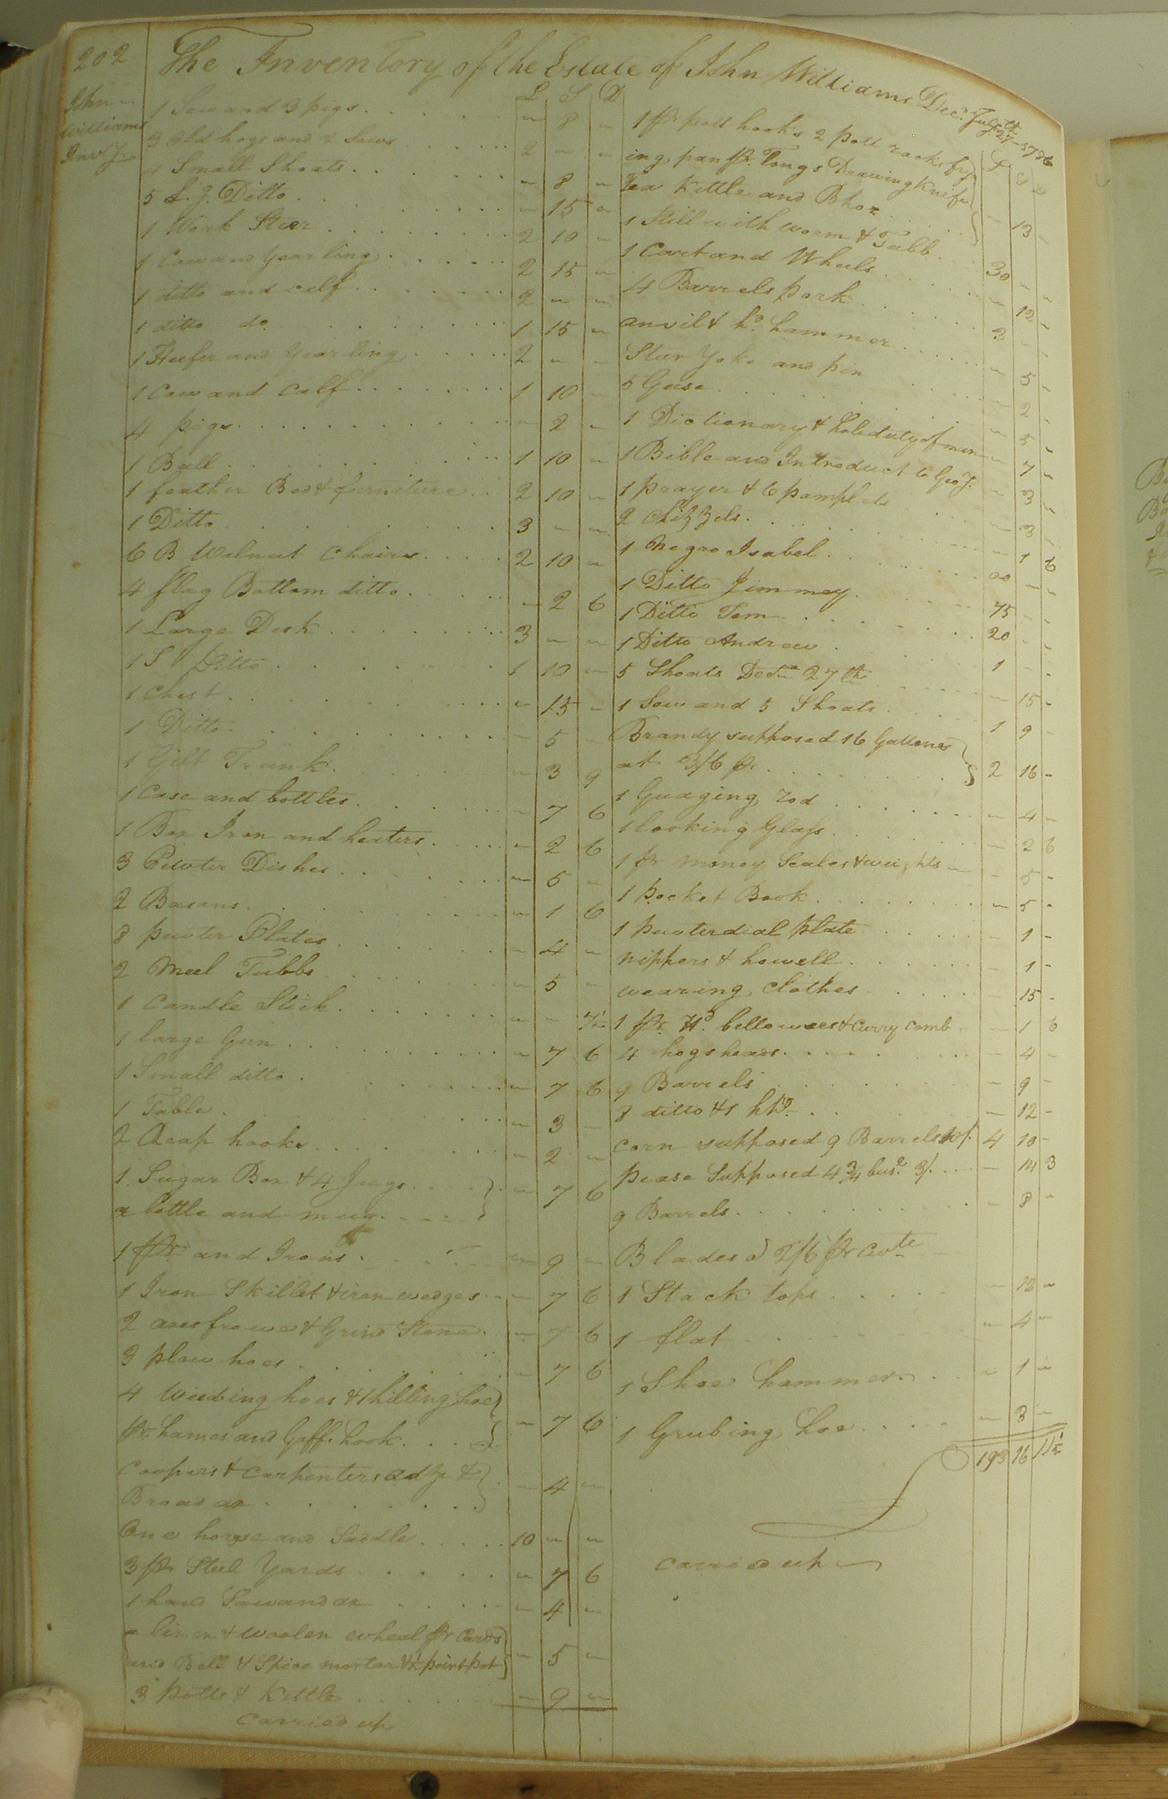 202
The Inventory of the Estate of John Williams Decd. July 27th 1796
John
Williams
Invy
L S D
1 Sow and 3 pigs - 8 -
3 old hogs and 2 Sows 2 - -
4 Small Shoats - 8 -
5 L. J. Ditto - 15 -
1 Work Steer 2 10 -
1 Cow and Yearling 2 15 -
1 ditto and calf 2 - -
1 ditto do 1 15 -
1 Heifer and Yearling 2 - -
1 Cow and Calf 1 10 -
4 pigs - 2 -
1 Bull 1 10 -
1 feather Bed & furniture 2 10 -
1 Ditto 3 - -
6 B Walnut Chairs 2 10 -
4 flag Bottom ditto - 2 6
1 Large Desk 3 - -
1 S Ditto 1 10 -
1 Chest - 15 -
1 Ditto - 5 -
1 Gilt Trunk - 3 9
1 Case and bottles - 7 6
1 Box Iron and heaters - 2 6
3 Pewter Dishes - 5 -
2 Basons - 1 6
8 pewter Plates - 4 -
2 Meel Tubbs - 5 -
1 Candle Stick - - 7½
1 large Gun - 7 6
1 Small ditto - 7 6
1 Table - 3 -
2 Reap hooks - 2 -
1 Sugar Box & 4 Jugs
a bottle and mug - 7 6
1 pr and Irons - 9 -
1 Iron Skillet & iron wedges - 7 6
2 axes frower & Grind Stone - 7 6
3 plow hoes - 7 6
4 Weeding hoes & 1 hilling hoe
pr hames and Gaff hook - 7 6
Coopers & carpenters adze &
Broad ax - 4 -
One horse and Saddle 10 - -
3 pr Steel Yards - 7 6
1 hand Saw and ax - 4 -
a linen & woolen wheel pr Cards
and Bell & Spice mortar & ½ point pot - 5 -
3 potts & Kettle - 9 -
Carried up
L S D
1 pr pott hooks 2 pott racks fry
ing pan pr Tongs Drawing Knife
Tea Kettle and Box - 13 -
1 Still with worm & Tubb 30 - -
1 Cart and Wheels - 12 -
4 Barrels pork 3 - -
anvil & hd. hammer - 5 -
Steer Yoke and pin - 2 -
5 Geese - 5 -
1 Dictionary & hole duty of man - 7 -
1 Bible and Introduct to Geo J. - 3 -
1 prayer & 6 pamplets - 3 -
2 Chizzels - 1 6
1 Negro Isabel 20 - -
1 Ditto Jimmey 75 - -
1 Ditto Tom 20 - -
1 Ditto Andrew 1 - -
5 Shoats Decr 27th - 15 -
1 Sow and 5 Shoats 1 9 -
Brandy supposed 16 Gallons
at 3/6 pr 2 16 -
1 Guaging rod - 4 -
1 looking Glass - 2 6
1 pr money Scales & weights - 5 -
1 pocket Book - 5 -
1 pewter dial plate - 1 -
nippers & howell - 1 -
wearing clothes - 15 -
1 pr Hd bellowses & Curry comb - 1 6
4 hogsheads - 4 -
9 Barrels - 9 -
8 ditto & 1 hhd - 12 -
Corn supposed 9 Barrels 10/. 4 10 -
pease Supposed 4¾ bus. 3/. - 14 3
9 Barrels - 8 -
Blades @ 2/6 pr Cwte
1 Stack tops - 12 -
1 flat - 4 -
1 Shoe hammer - 1 -
1 Grubing hoe - 3 -
193 16 11½
Carried up